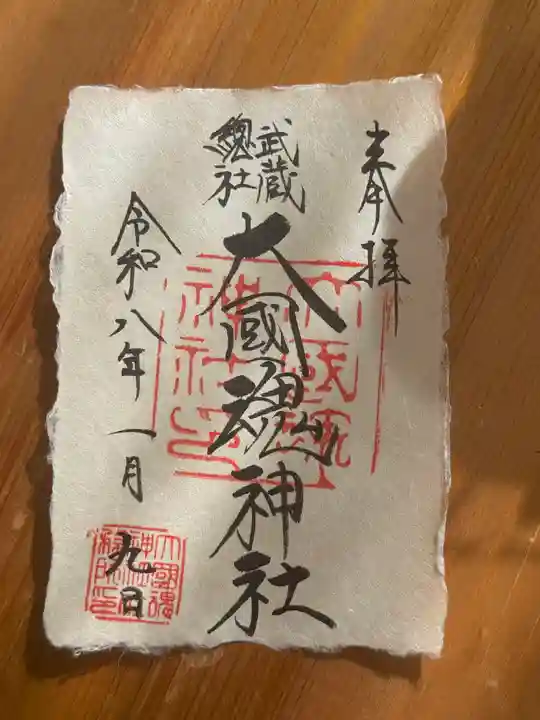 奉拝
武蔵
總社
大國魂神社
令和八年一月
九日
大國魂
神社印